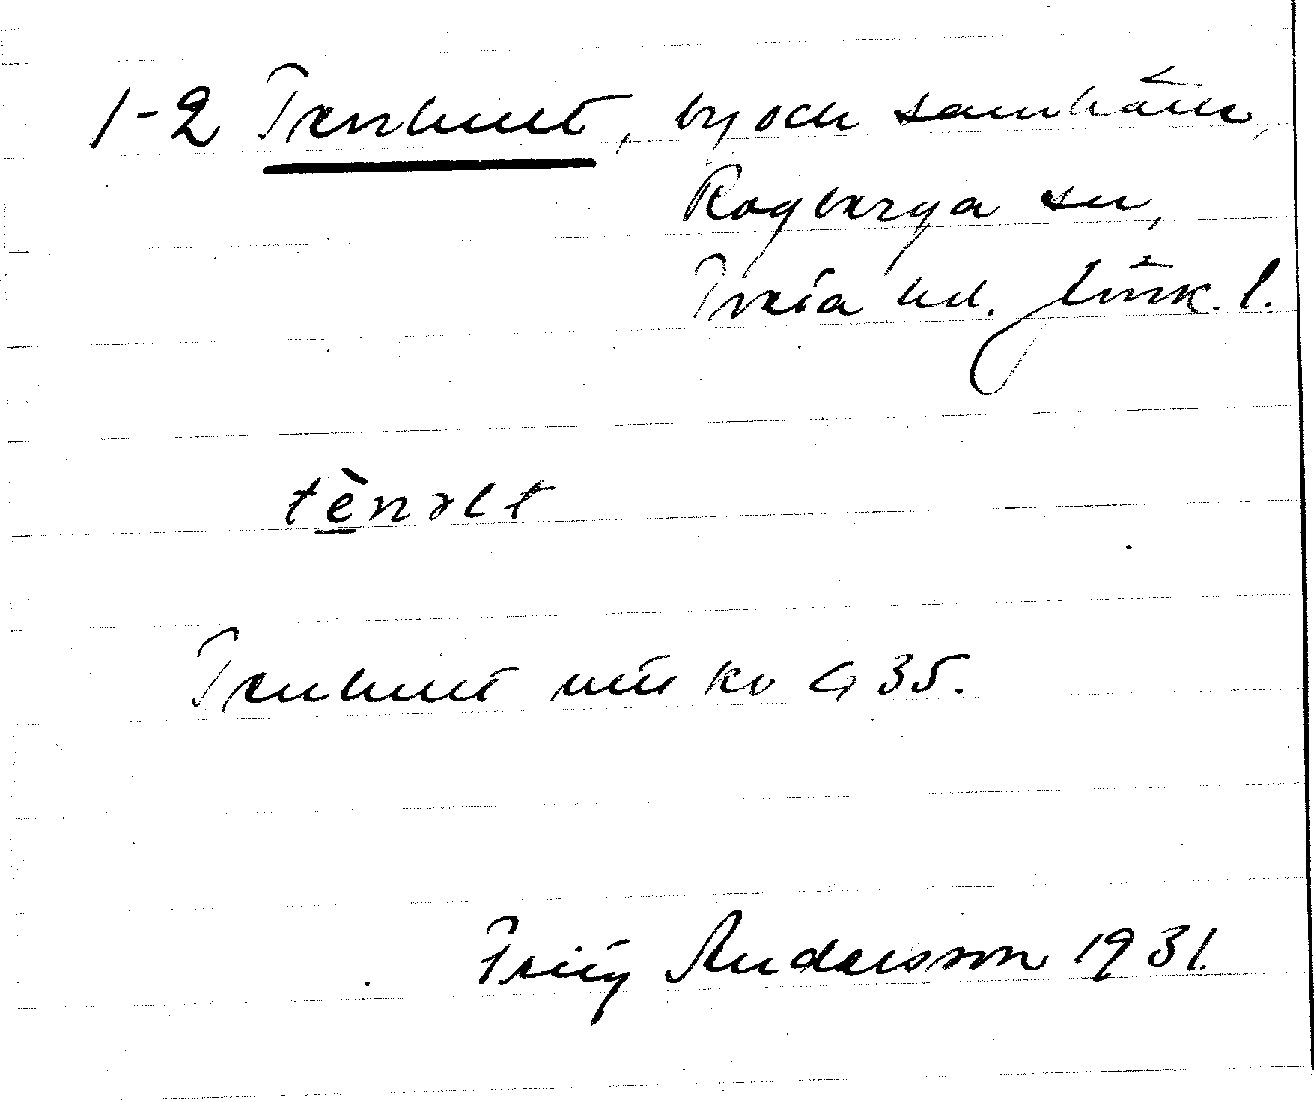 1-2 Tenhult, by och samhälle,
Rogberga sn,
Tveta hd. Jönk. l.
tènəlt
Tenhult utis kv G 35.
Fritz Andersson 1931.